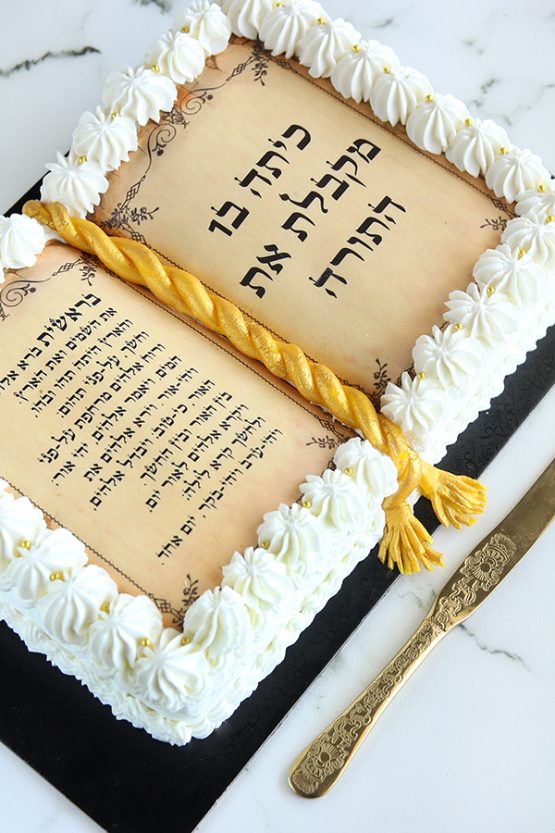 כיתה בו
מקבלת את
התורה
בראשית ברא אלהים
את השמים ואת הארץ
והארץ היתה תהו ובהו
וחשך על פני תהום
ורוח אלהים מרחפת על פני
המים ויאמר אלהים יהי אור
ויהי אור וירא אלהים את
האור כי טוב ויבדל אלהים
בין האור ובין החשך
ויקרא אלהים לאור יום
ולחשך קרא לילה
ויהי ערב ויהי בקר
יום אחד